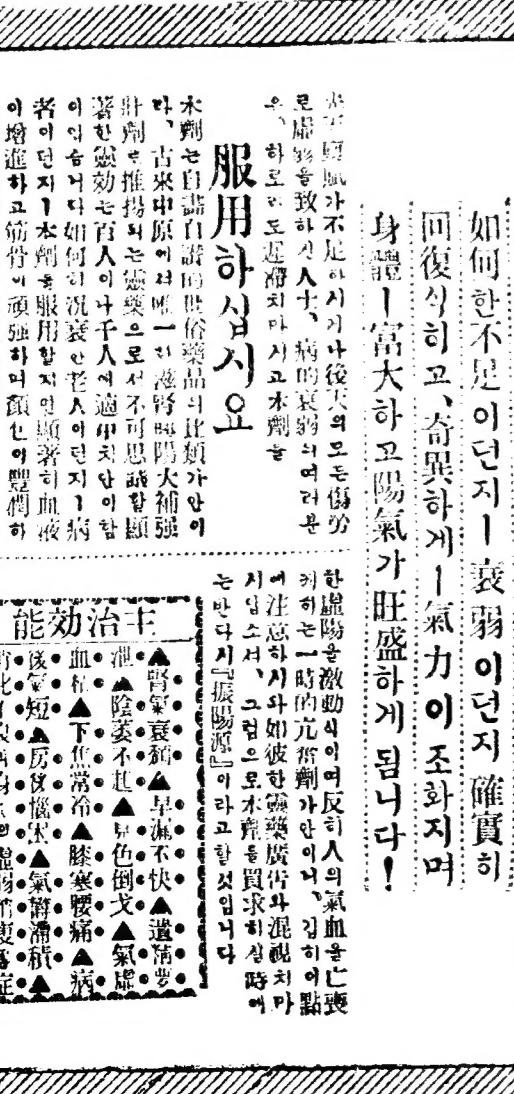 如何한不足이던지ㅣ衰弱이던지確實히
回復식히고、奇異하게ㅣ氣力이조화지며
身體ㅣ富大하고陽氣가旺盛하게됨니다!
稟賦가不足하시거나後天의모든傷勞
로虛弱을致하신人士、病的衰弱의여러분
은、하로라도遲滯치마시고本劑을
服用하십시요
本劑는自畵自讚的世俗藥品의比類가안이
라、古來中原에서唯一의滋腎興陽大補强
壯劑로推揚되는靈藥으로서不可思議할顯
著한靈効는百人이나千人에適中치안이함
이업슴니다如何히況衰한老人이던지ㅣ病
者이던지ㅣ本劑을服用할지면顯著히血液
이增進하고筋骨이頑强하며顏色이豐潤하
한虛陽을激動식이여反히人의氣血을亡喪
케하는一時的亢奮劑가안이니、깁히이點
에注意하시와如彼한靈藥廣告와混視치마
시압소서、그럼으로本劑를買求하실時에
는반다시『振陽源』이라고할것입니다
主治効能
▲腎氣衰頹▲早漏不快▲遺精夢
泄▲陰萎不起▲見色倒戈▲氣虛
血枯▲下焦常冷▲膝寒腰痛▲病
後氣短▲房後惱困▲氣鬱滯積▲